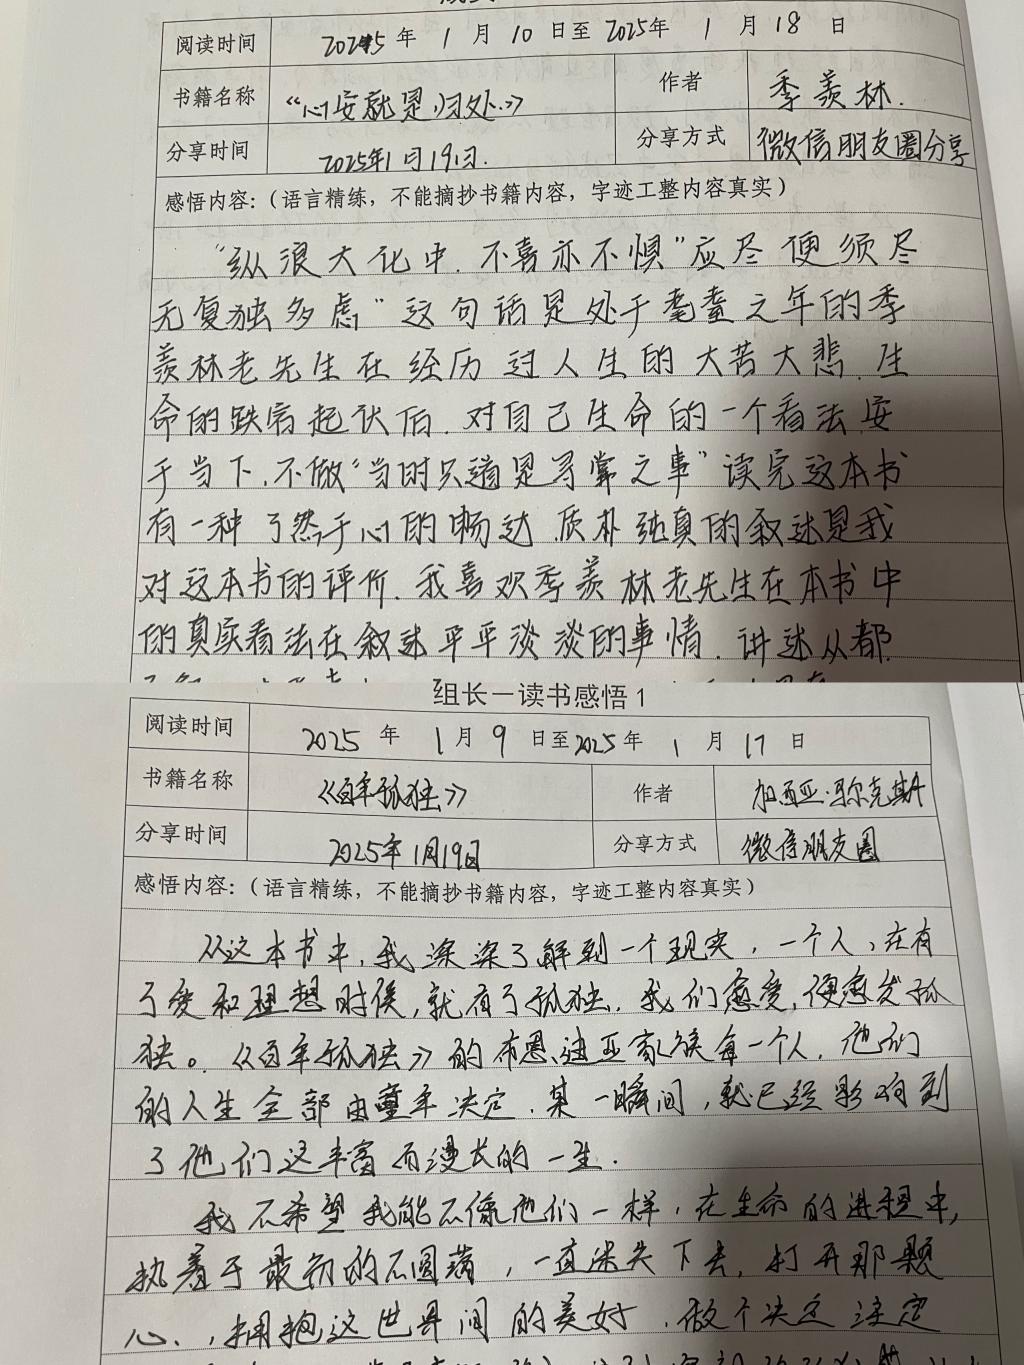 阅读时间 2025年 1月10日至2025年 1月18日
书籍名称 《心安就是归处》 作者 季羡林.
分享时间 2025年1月19日. 分享方式 微信朋友圈分享
感悟内容:(语言精练，不能摘抄书籍内容，字迹工整内容真实)
"纵浪大化中.不喜亦不惧"应尽便须尽
无复独多虑"这句话是处于耄耋之年的季
羡林老先生在经历过人生的大苦大悲.生
命的跌宕起伏后.对自己生命的一个看法.安
于当下.不做"当时只道是寻常之事"读完这本书
有一种了然于心的畅达.质朴纯真的叙述是我
对这本书的评价.我喜欢季羡林老先生在本书中
的真实看法在叙述平平淡淡的事情.讲述从都
组长一读书感悟1
阅读时间 2025年 1月9日至2025年 1月17日
书籍名称 《百年孤独》 作者 加西亚·马尔克斯
分享时间 2025年1月19日 分享方式 微信朋友圈
感悟内容:(语言精练，不能摘抄书籍内容，字迹工整内容真实)
从这本书中,我深深了解到一个现实,一个人,在有
了爱和理想时候,就有了孤独.我们愈爱,便愈发孤
独。《百年孤独》的布恩迪亚家族每一个人.他们
的人生全部由童年决定.某一瞬间,就已经影响到
了他们这丰富而漫长的一生.
我不希望我能不像他们一样,在生命的进程中,
执着于最初的不圆满,一直迷失下去.打开那颗
心.,拥抱这世界间的美好.做个决定 注定